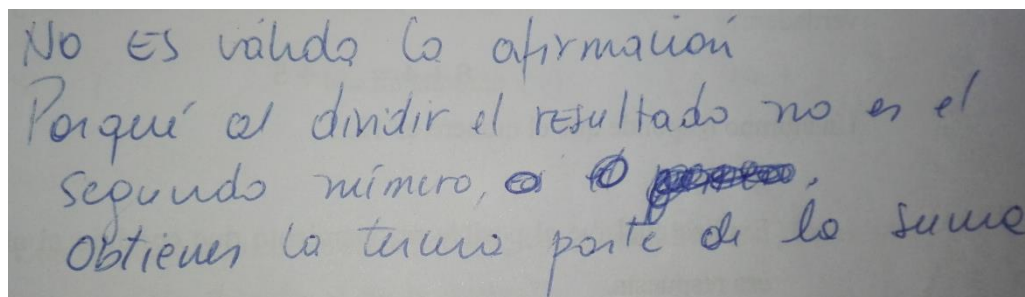 No ES válida la afirmación
Porqué al dividir el resultado no es el
segundo número,
Obtienes la tercera parte de la suma